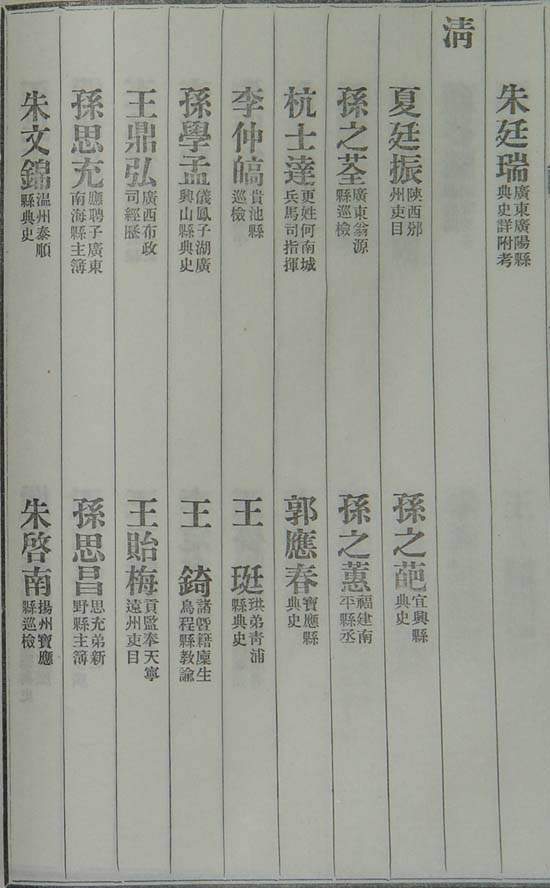 朱廷瑞 廣東廣陽縣典史詳附考
清
夏廷振 陝西邠州吏目
孫之葩 宜興縣典史
孫之荃 廣東翁源縣巡檢
孫之蕙 福建南平縣丞
杭士達 更姓何南城兵馬司指揮
郭應春 寶應縣典史
李仲皜 貴池縣巡檢
王珽 珙弟青浦縣典史
孫學孟 儀鳳子湖廣興山縣典史
王錡 諸暨籍廩生烏程縣教諭
王鼎弘 廣西布政司經歷
王貽梅 貢監奉天寧遠州吏目
孫思充 應聘子廣東南海縣主簿
孫思昌 思充弟新野縣主簿
朱文錦 温州泰順縣典史
朱啓南 揚州寶應縣巡檢